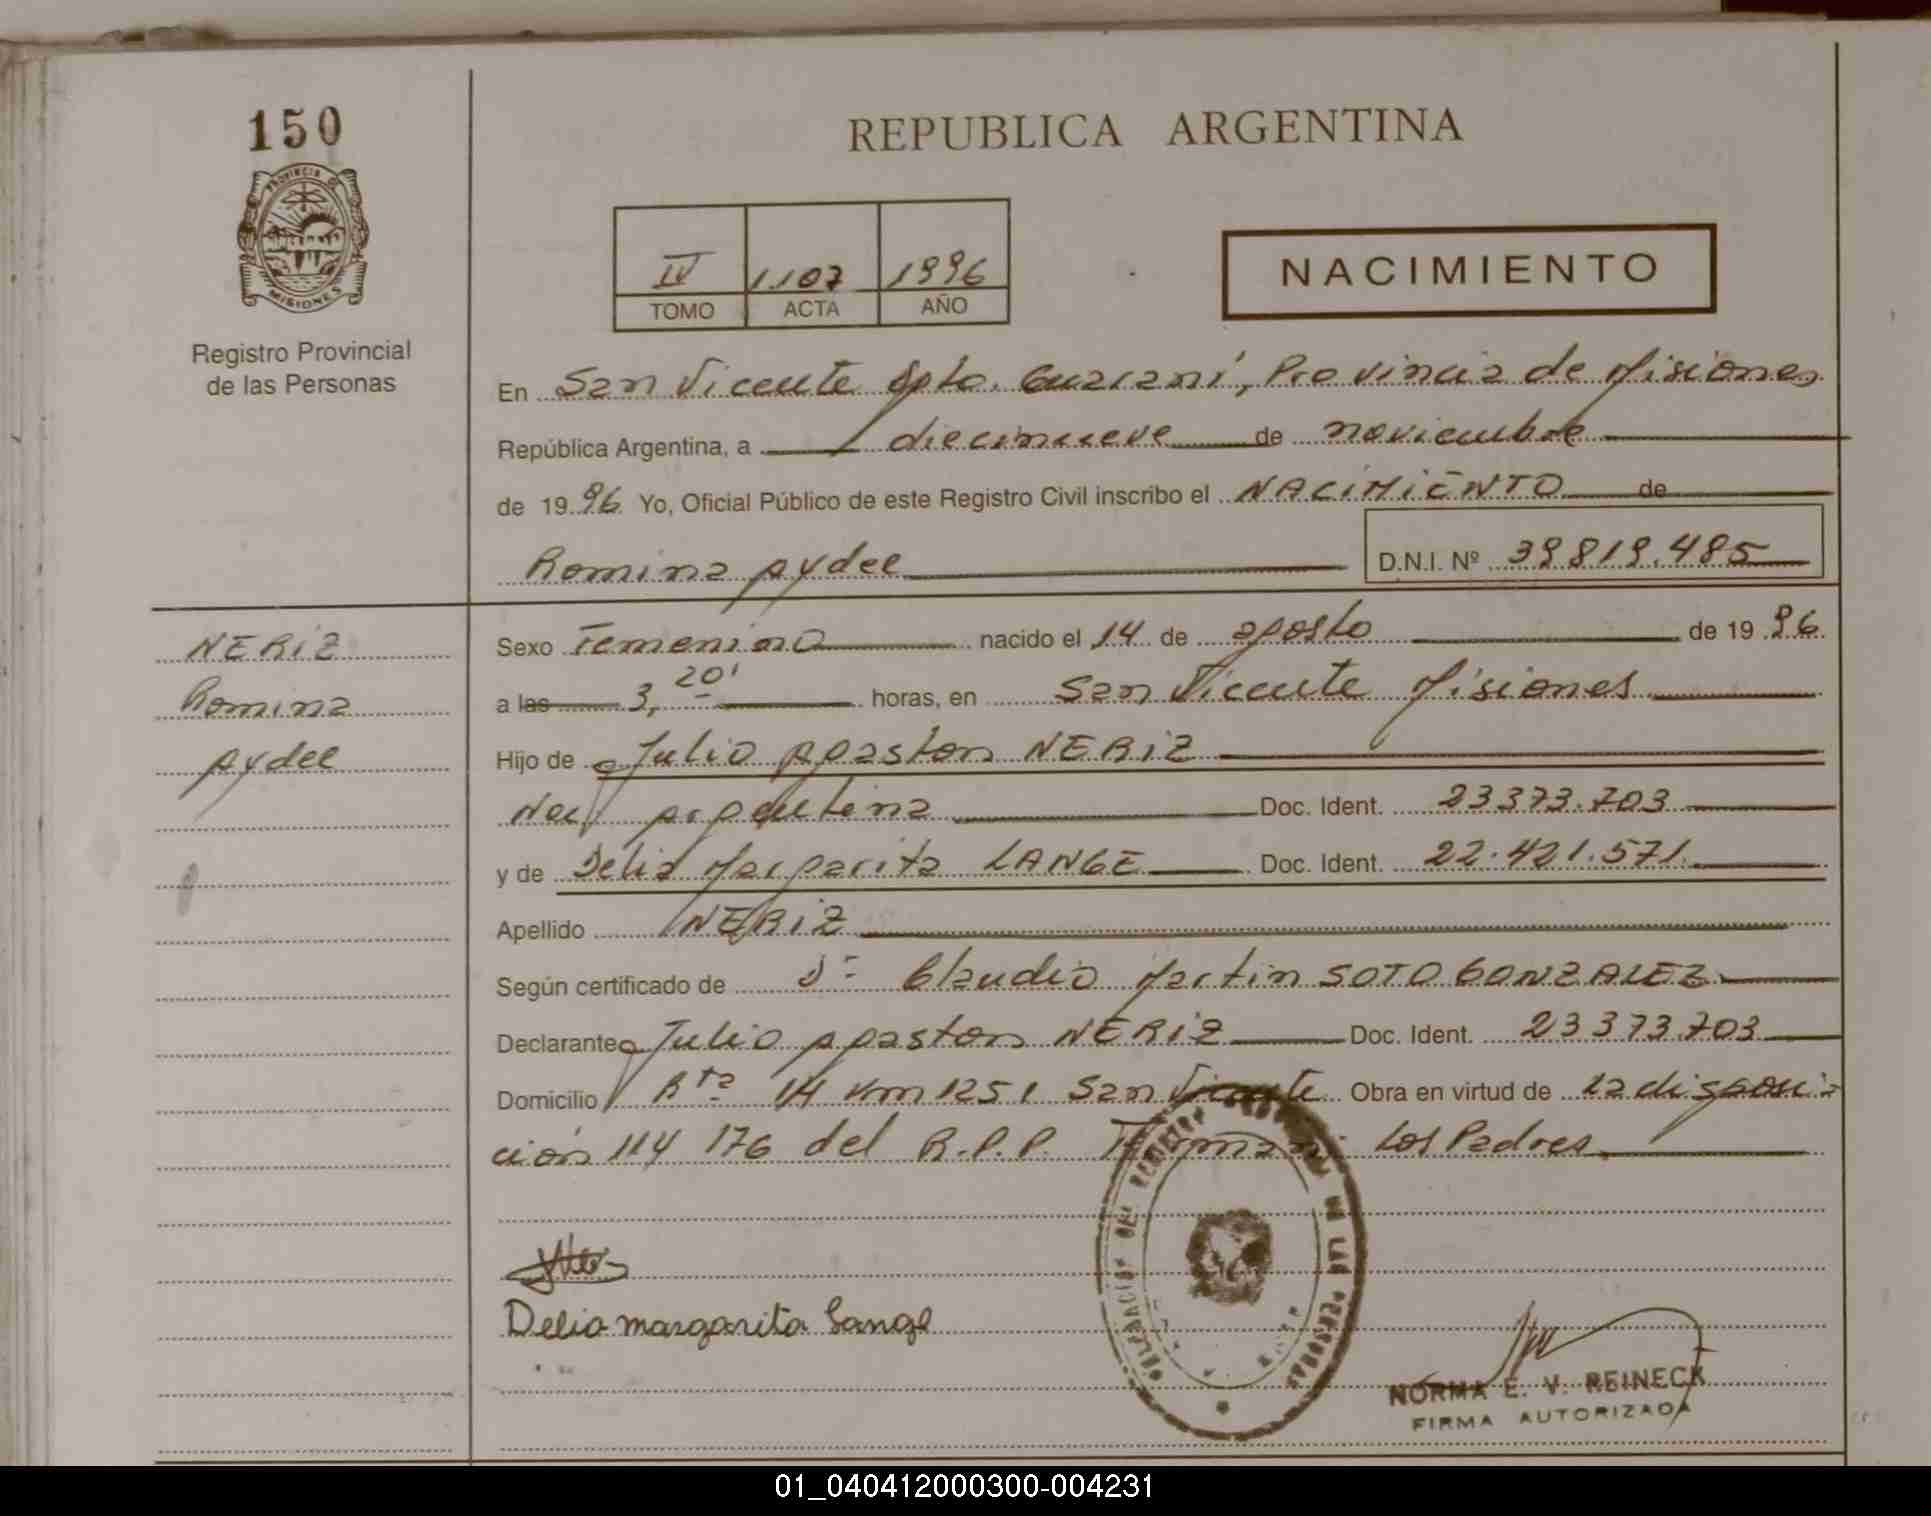 150
PROVINCIA DE
MISIONES
Registro Provincial
de las Personas
REPUBLICA ARGENTINA
IV 1.107 1996
TOMO ACTA AÑO
NACIMIENTO
En San Vicente Dpto. Guaraní, Provincia de Misiones
República Argentina, a diecinueve de noviembre
de 1996 Yo, Oficial Público de este Registro Civil inscribo el NACIMIENTO de
Romina Aydee D.N.I. Nº 39819.485
NERIZ
Romina
Aydee
Sexo Femenino nacido el 14 de agosto de 1996
a las 3,20' horas, en San Vicente Misiones
Hijo de Julio Agaston NERIZ
Nac Argentina Doc. Ident. 23373.703
y de Delia Margarita LANGE Doc. Ident. 22.421.571
Apellido NERIZ
Según certificado de Dr Claudio Martin SOTO GONZALEZ
Declarante Julio Agaston NERIZ Doc. Ident. 23373.703
Domicilio Rta 14 Km 1251 San Vicente Obra en virtud de la disposi
ción 114 176 del R.P.P. Firman: Los Padres
Delia margarita Lange
DELEGACION DEL REGISTRO DE LAS PERSONAS
NORMA E. V. REINECK
FIRMA AUTORIZADA
01_040412000300-004231